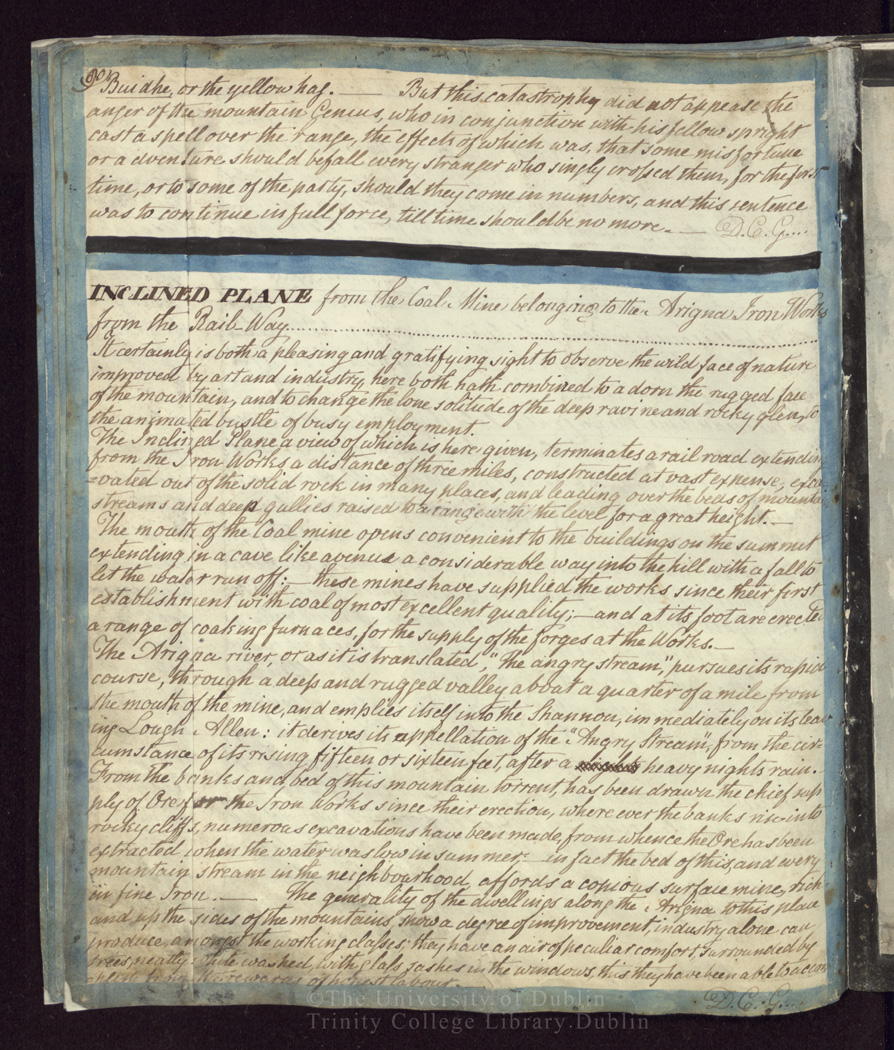 Buidhe, or the yellow hag. — But this catastrophy did not appease the
anger of the mountain Genius, who in conjunction with his fellow spright
cast a spell over the range, the effects of which was, that some misfortune
or adventure should befall every stranger who singly crossed them, for the first
time, or to some of the party, should they come in numbers, and this sentence
was to continue in full force, till time should be no more. — D.C.G....
INCLINED PLANE from the Coal Mine belonging to the Arigna Iron Works
from the Rail Way
It certainly is both a pleasing and gratifying sight to observe the wild face of nature
improved by art and industry, here both hath combined to adorn the rugged face
of the mountain, and to change the lone solitude of the deep ravine and rocky glen, to
the animated bustle of busy employment.
The Inclined Plane a view of which is here given, terminates a rail road extending
from the Iron Works a distance of three miles, constructed at vast expense, exca
=vated out of the solid rock in many places, and leading over the beds of mountain
streams and deep gullies raised to a range with the level for a great height. —
The mouth of the Coal mine opens convenient to the buildings on the summit
extending in a cave like avenue a considerable way into the hill with a fall to
let the water run off: — these mines have supplied the works since their first
establishment with coal of most excellent quality; — and at its foot are erected
a range of coaking furnaces, for the supply of the forges at the Works. —
The Arigna river, or as it is translated, "the angry stream", pursues its rapid
course, through a deep and rugged valley about a quarter of a mile from
the mouth of the mine, and empties itself into the Shannon, immediately on its leav
ing Lough Allen: it derives its appellation of the "Angry Stream", from the cir-
cumstance of its rising fifteen or sixteen feet, after a heavy nights rain.
From the banks and bed of this mountain torrent, has been drawn the chief sup
ply of Ore for the Iron Works since their erection, where ever the banks rise into
rocky cliffs, numerous excavations have been made, from whence the Ore has been
extracted when the water was low in summer: in fact the bed of this, and every
mountain stream in the neighbourhood affords a copious surface mine, rich
in fine Iron. — The generality of the dwellings along the Arigna to this place
and up the sides of the mountains, show a degree of improvement, industry alone can
produce, amongst the working classes; they have an air of peculiar comfort, surrounded by
trees, neatly white washed, with glass sashes in the windows, this they have been able to accom
of honest labour.
D.C.G....
©The University of Dublin
Trinity College Library.Dublin